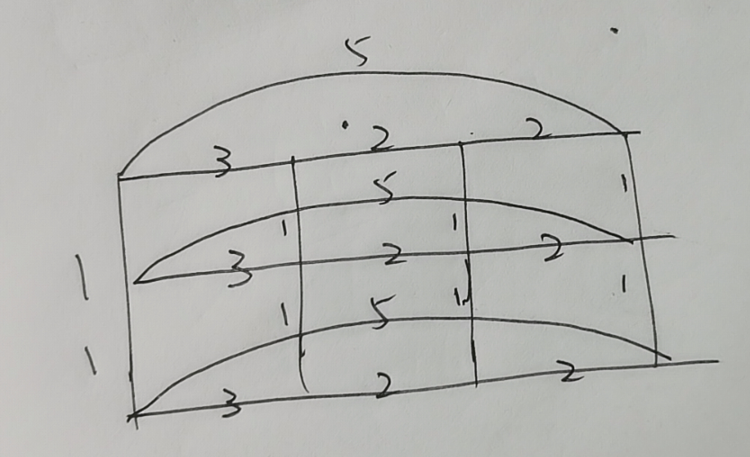 5
3 2 2
5
1 1 1
1 3 2 2
5
1 1 1
1
3 2 2